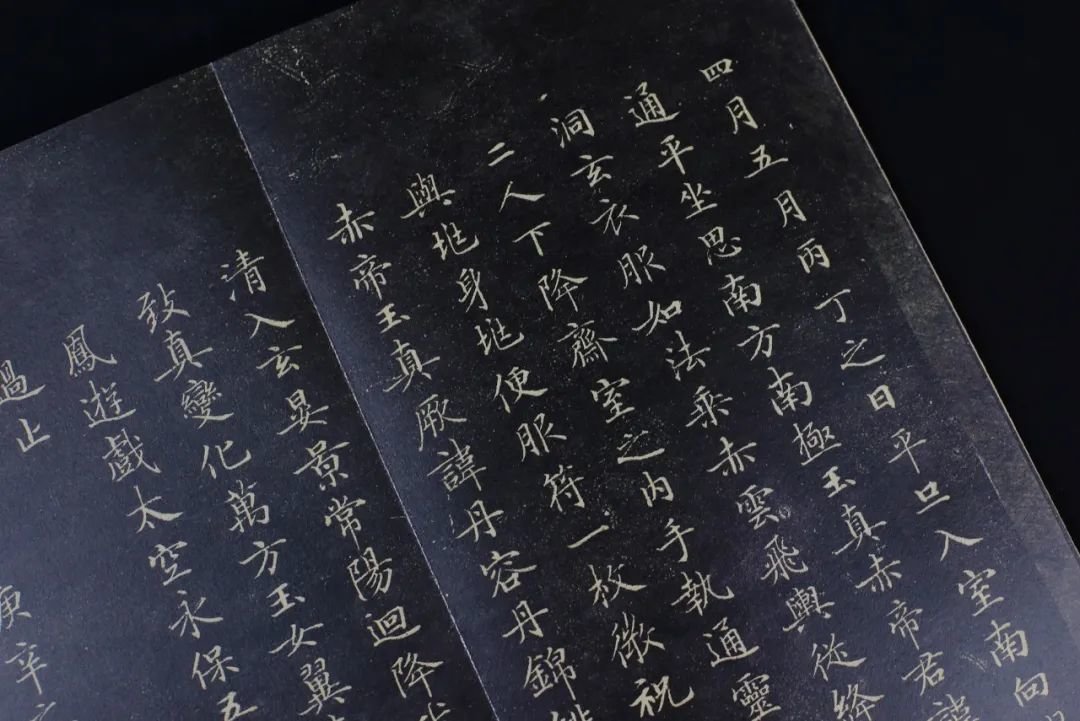 四月五月丙丁之日平旦入室南向
通平坐思南方南極玉真赤帝君諱
洞玄衣服如法乘赤雲飛輿從絳
二人下降齋室之内手執通靈
與坒身坒便服符一枚微祝
赤帝玉真厥諱丹容丹錦
清入玄晏景常陽迴降
致真變化萬方玉女翼
鳳遊戲太空永保五
過止
庚辛